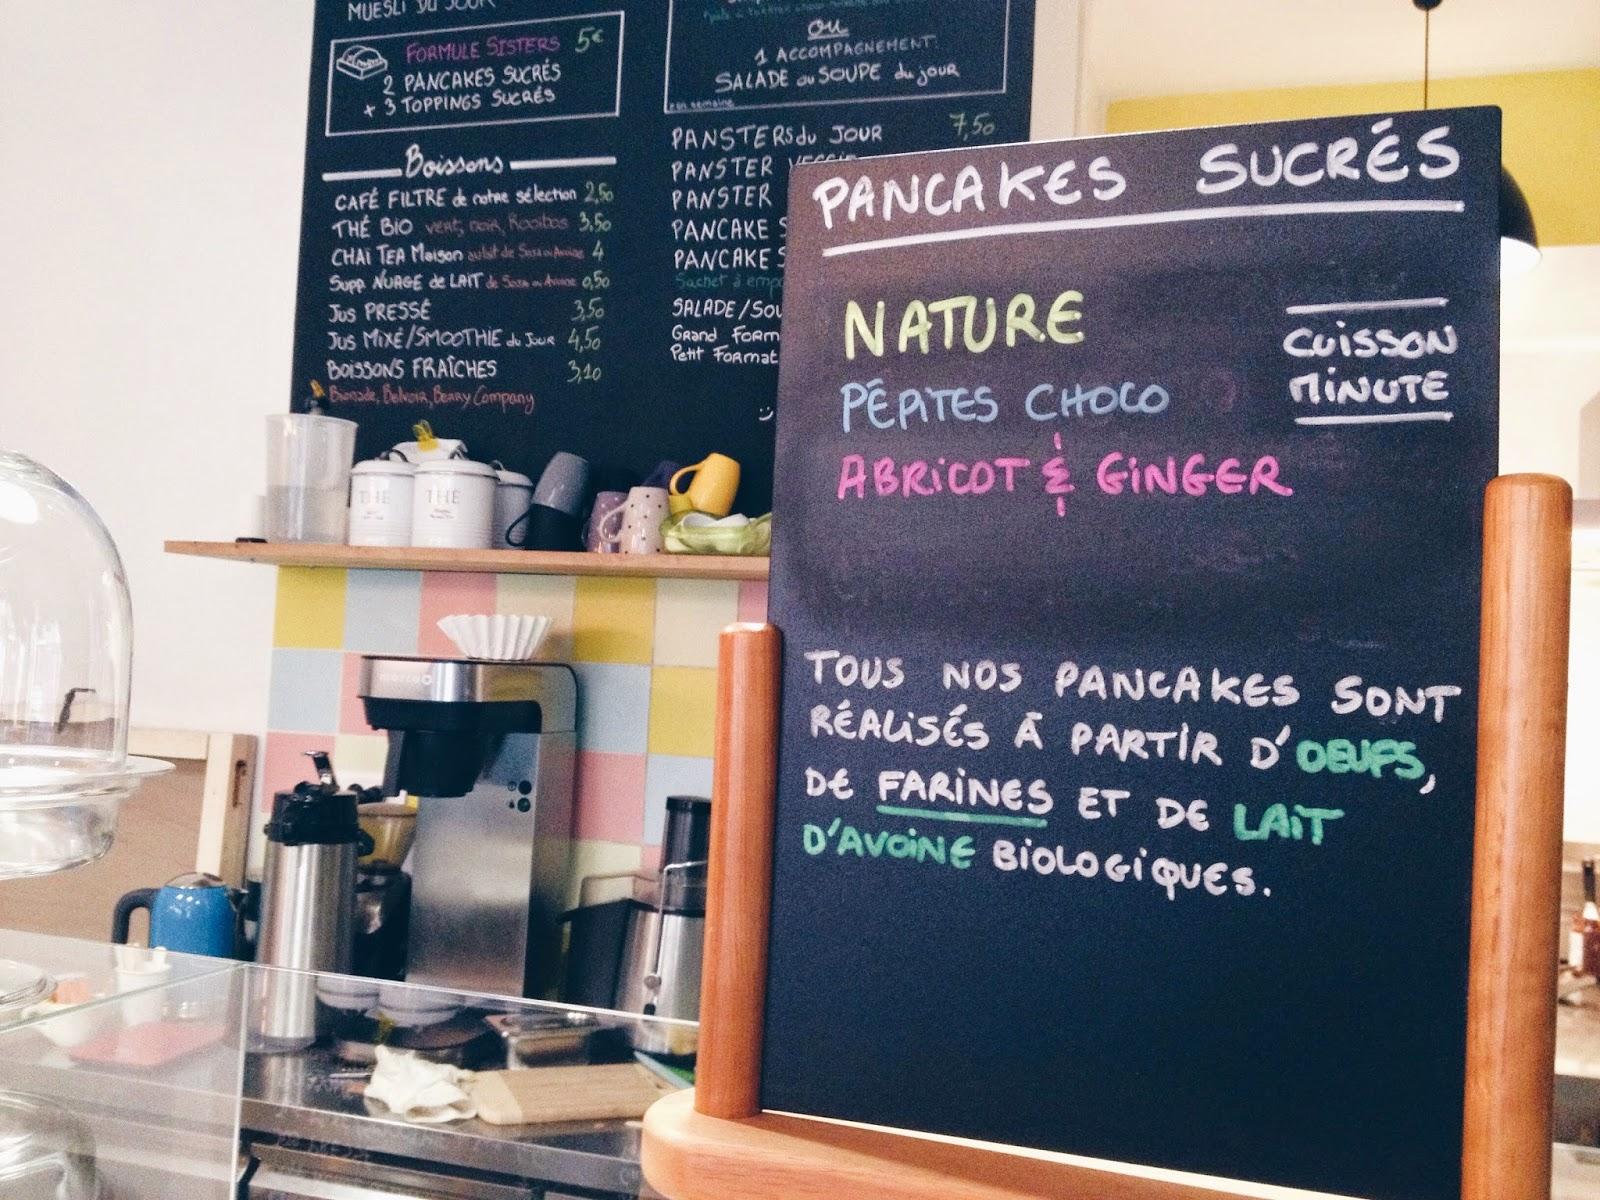 MUESLI DU JOUR
FORMULE SISTERS 5€
2 PANCAKES SUCRÉS
+ 3 TOPPINGS SUCRÉS
Boissons
CAFÉ FILTRE de notre sélection 2,50
THÉ BIO vert, noir, Rooibos 3,50
CHAï TEA Maison au lait de Soja ou Avoine 4
Supp. NUAGE de LAIT de Soja ou Avoine 0,50
Jus PRESSÉ 3,50
Jus MiXÉ/SMOOTHIE du Jour 4,50
BOISSONS FRAÎCHES 3,10
Bionade, Belvoir, Berry Company
ou
1 ACCOMPAGNEMENT:
SALADE ou SOUPE du jour
en semaine
PANSTERS du JOUR 7,50
PANSTER VEGGIE
PANSTER
PANCAKE S
PANCAKE S
Sachet à empo
SALADE/SOU
Grand Form
Petit Format
THÉ
THÉ
PANCAKES SUCRÉS
NATURE
PÉPITES CHOCO
ABRICOT & GINGER
CUISSON
MINUTE
TOUS NOS PANCAKES SONT
RÉALISÉS À PARTIR D'OEUFS,
DE FARINES ET DE LAIT
D'AVOINE BIOLOGIQUES.